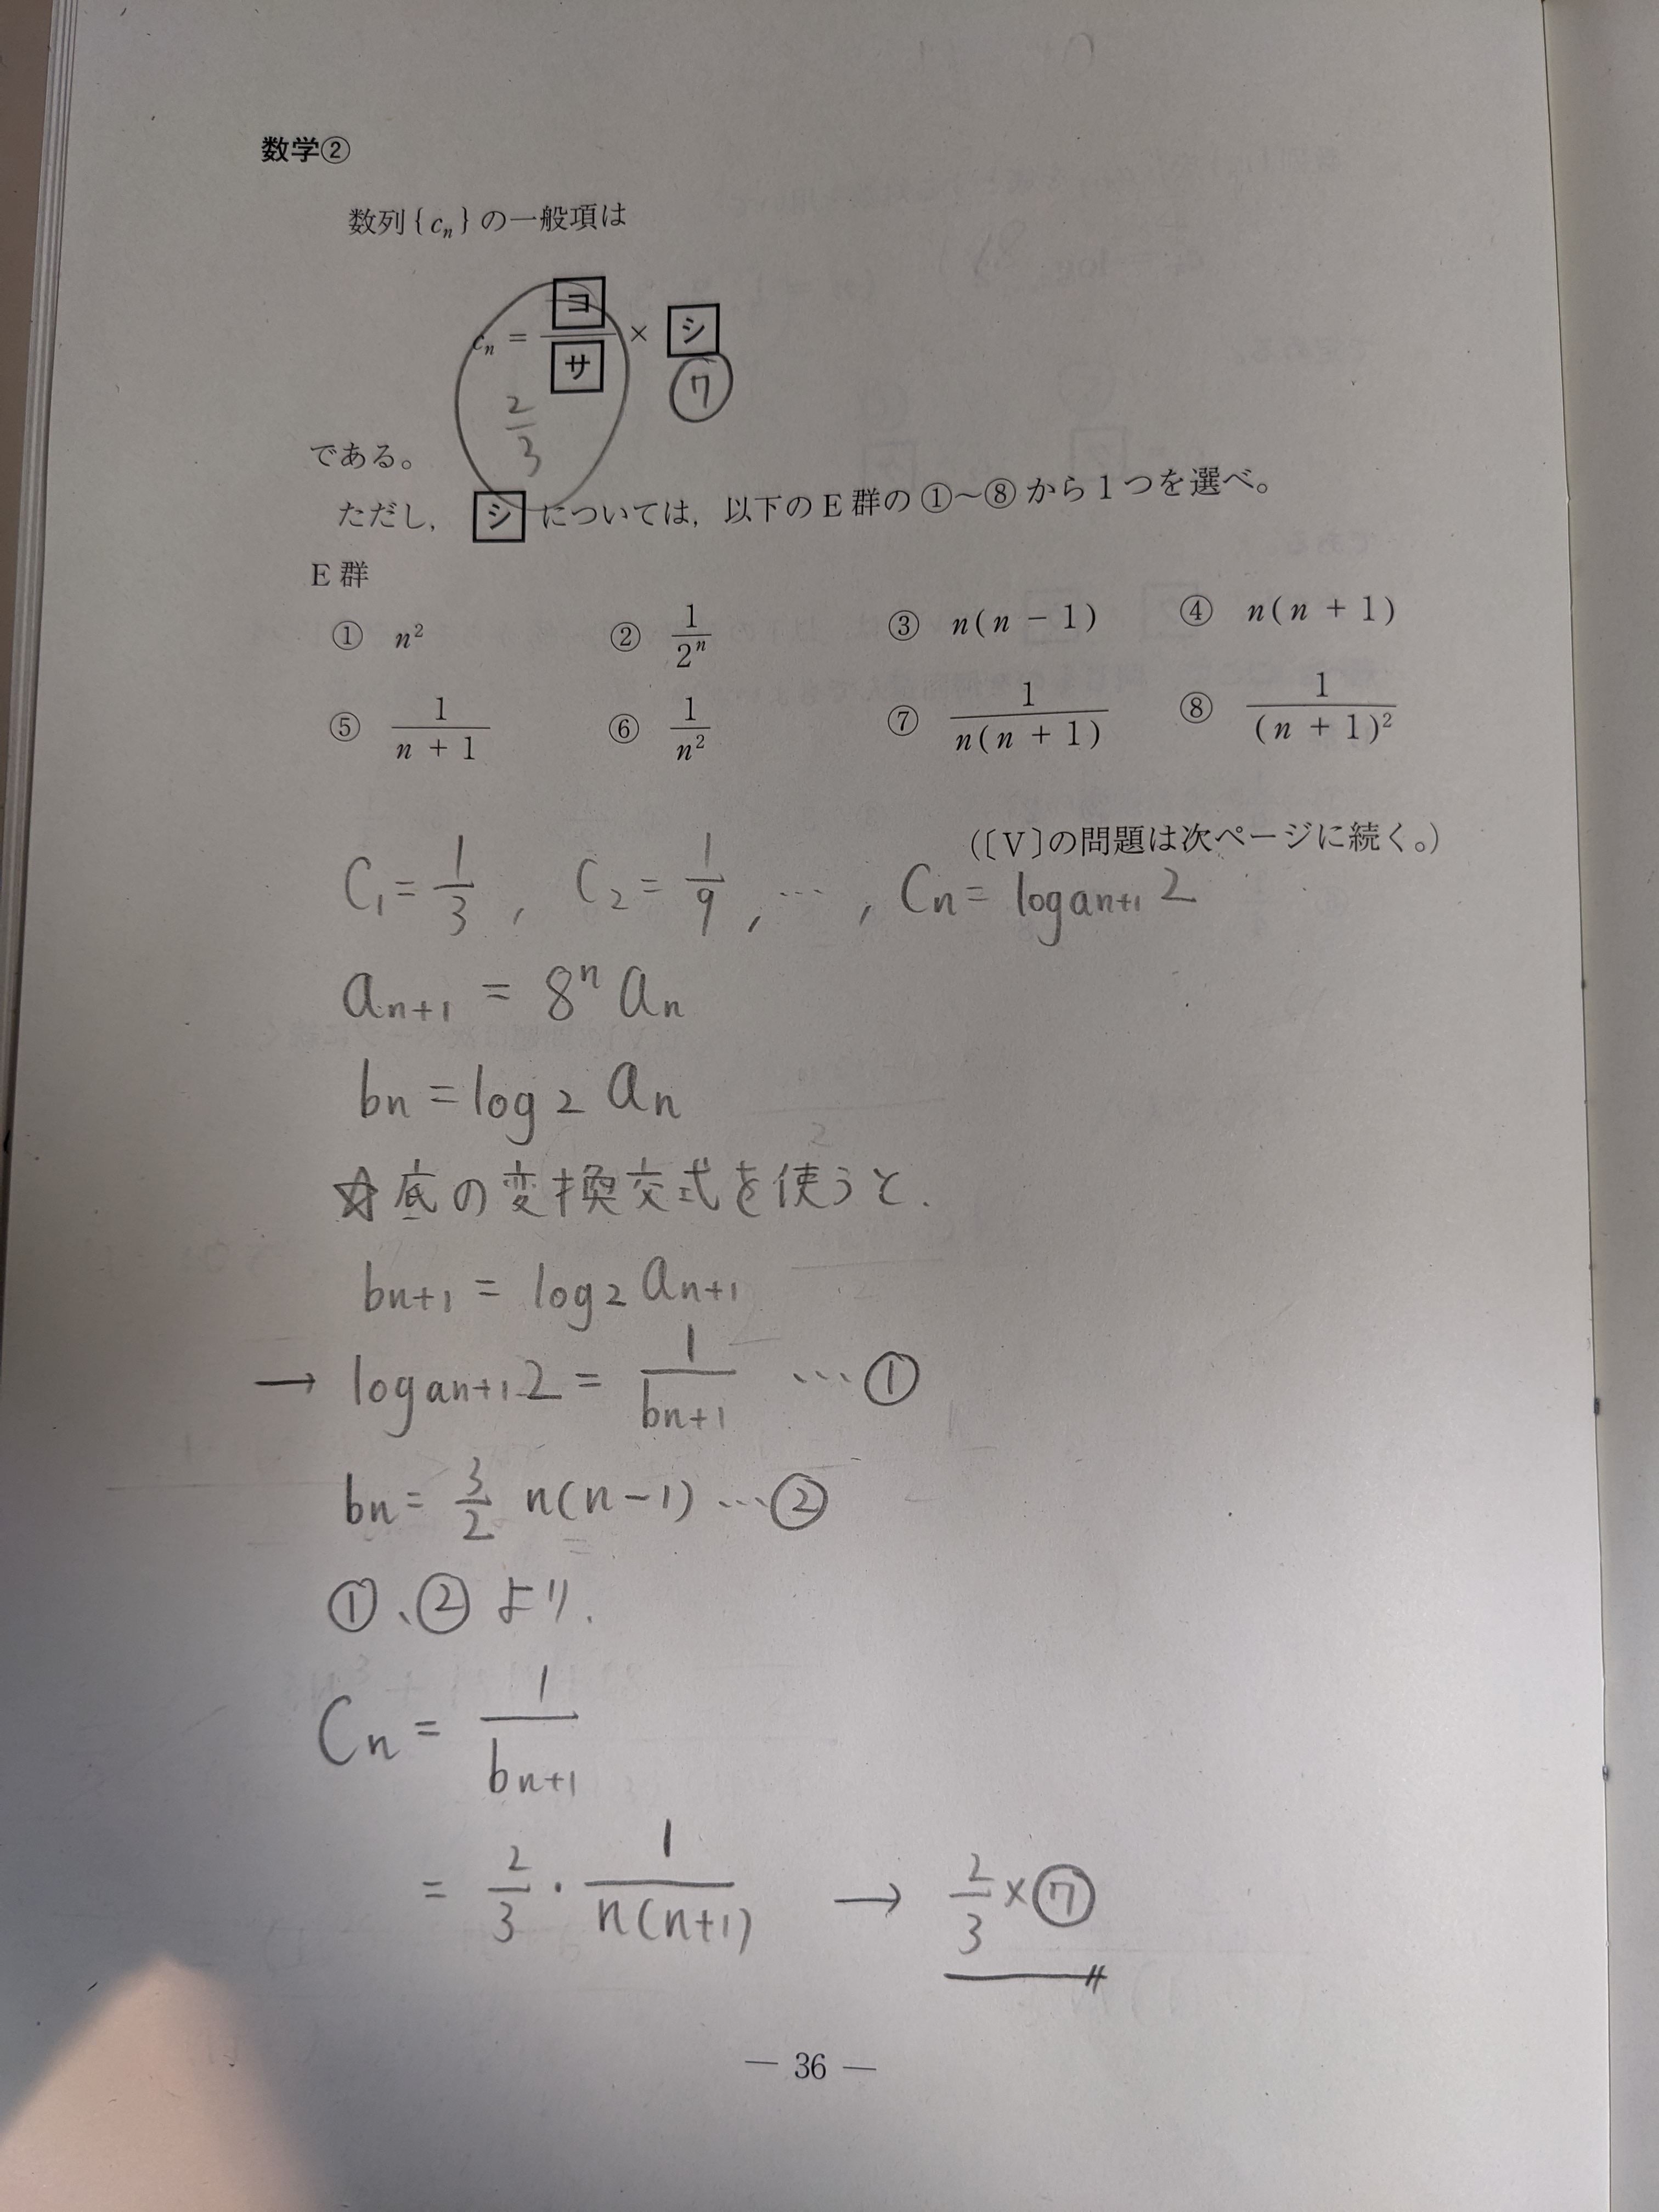 数学②
数列{cₙ}の一般項は
cₙ = ヨ/サ × シ
2/3 ⑦
である。
ただし, シ については, 以下のE群の①~⑧から1つを選べ。
E群
① n² ② 1/2ⁿ ③ n(n − 1) ④ n(n + 1)
⑤ 1/(n + 1) ⑥ 1/n² ⑦ 1/(n(n + 1)) ⑧ 1/(n + 1)²
(〔V〕の問題は次ページに続く。)
C₁ = 1/3 , C₂ = 1/9 , … , Cn = log an+1 2
an+1 = 8ⁿ an
bn = log 2 an
☆底の変換交式を使うと.
bn+1 = log 2 an+1
→ log an+1 2 = 1/bn+1 …①
bn = 3/2 n(n−1) …②
①、②より.
Cn = 1/bn+1
= 2/3 · 1/n(n+1) → 2/3 × ⑦
— 36 —